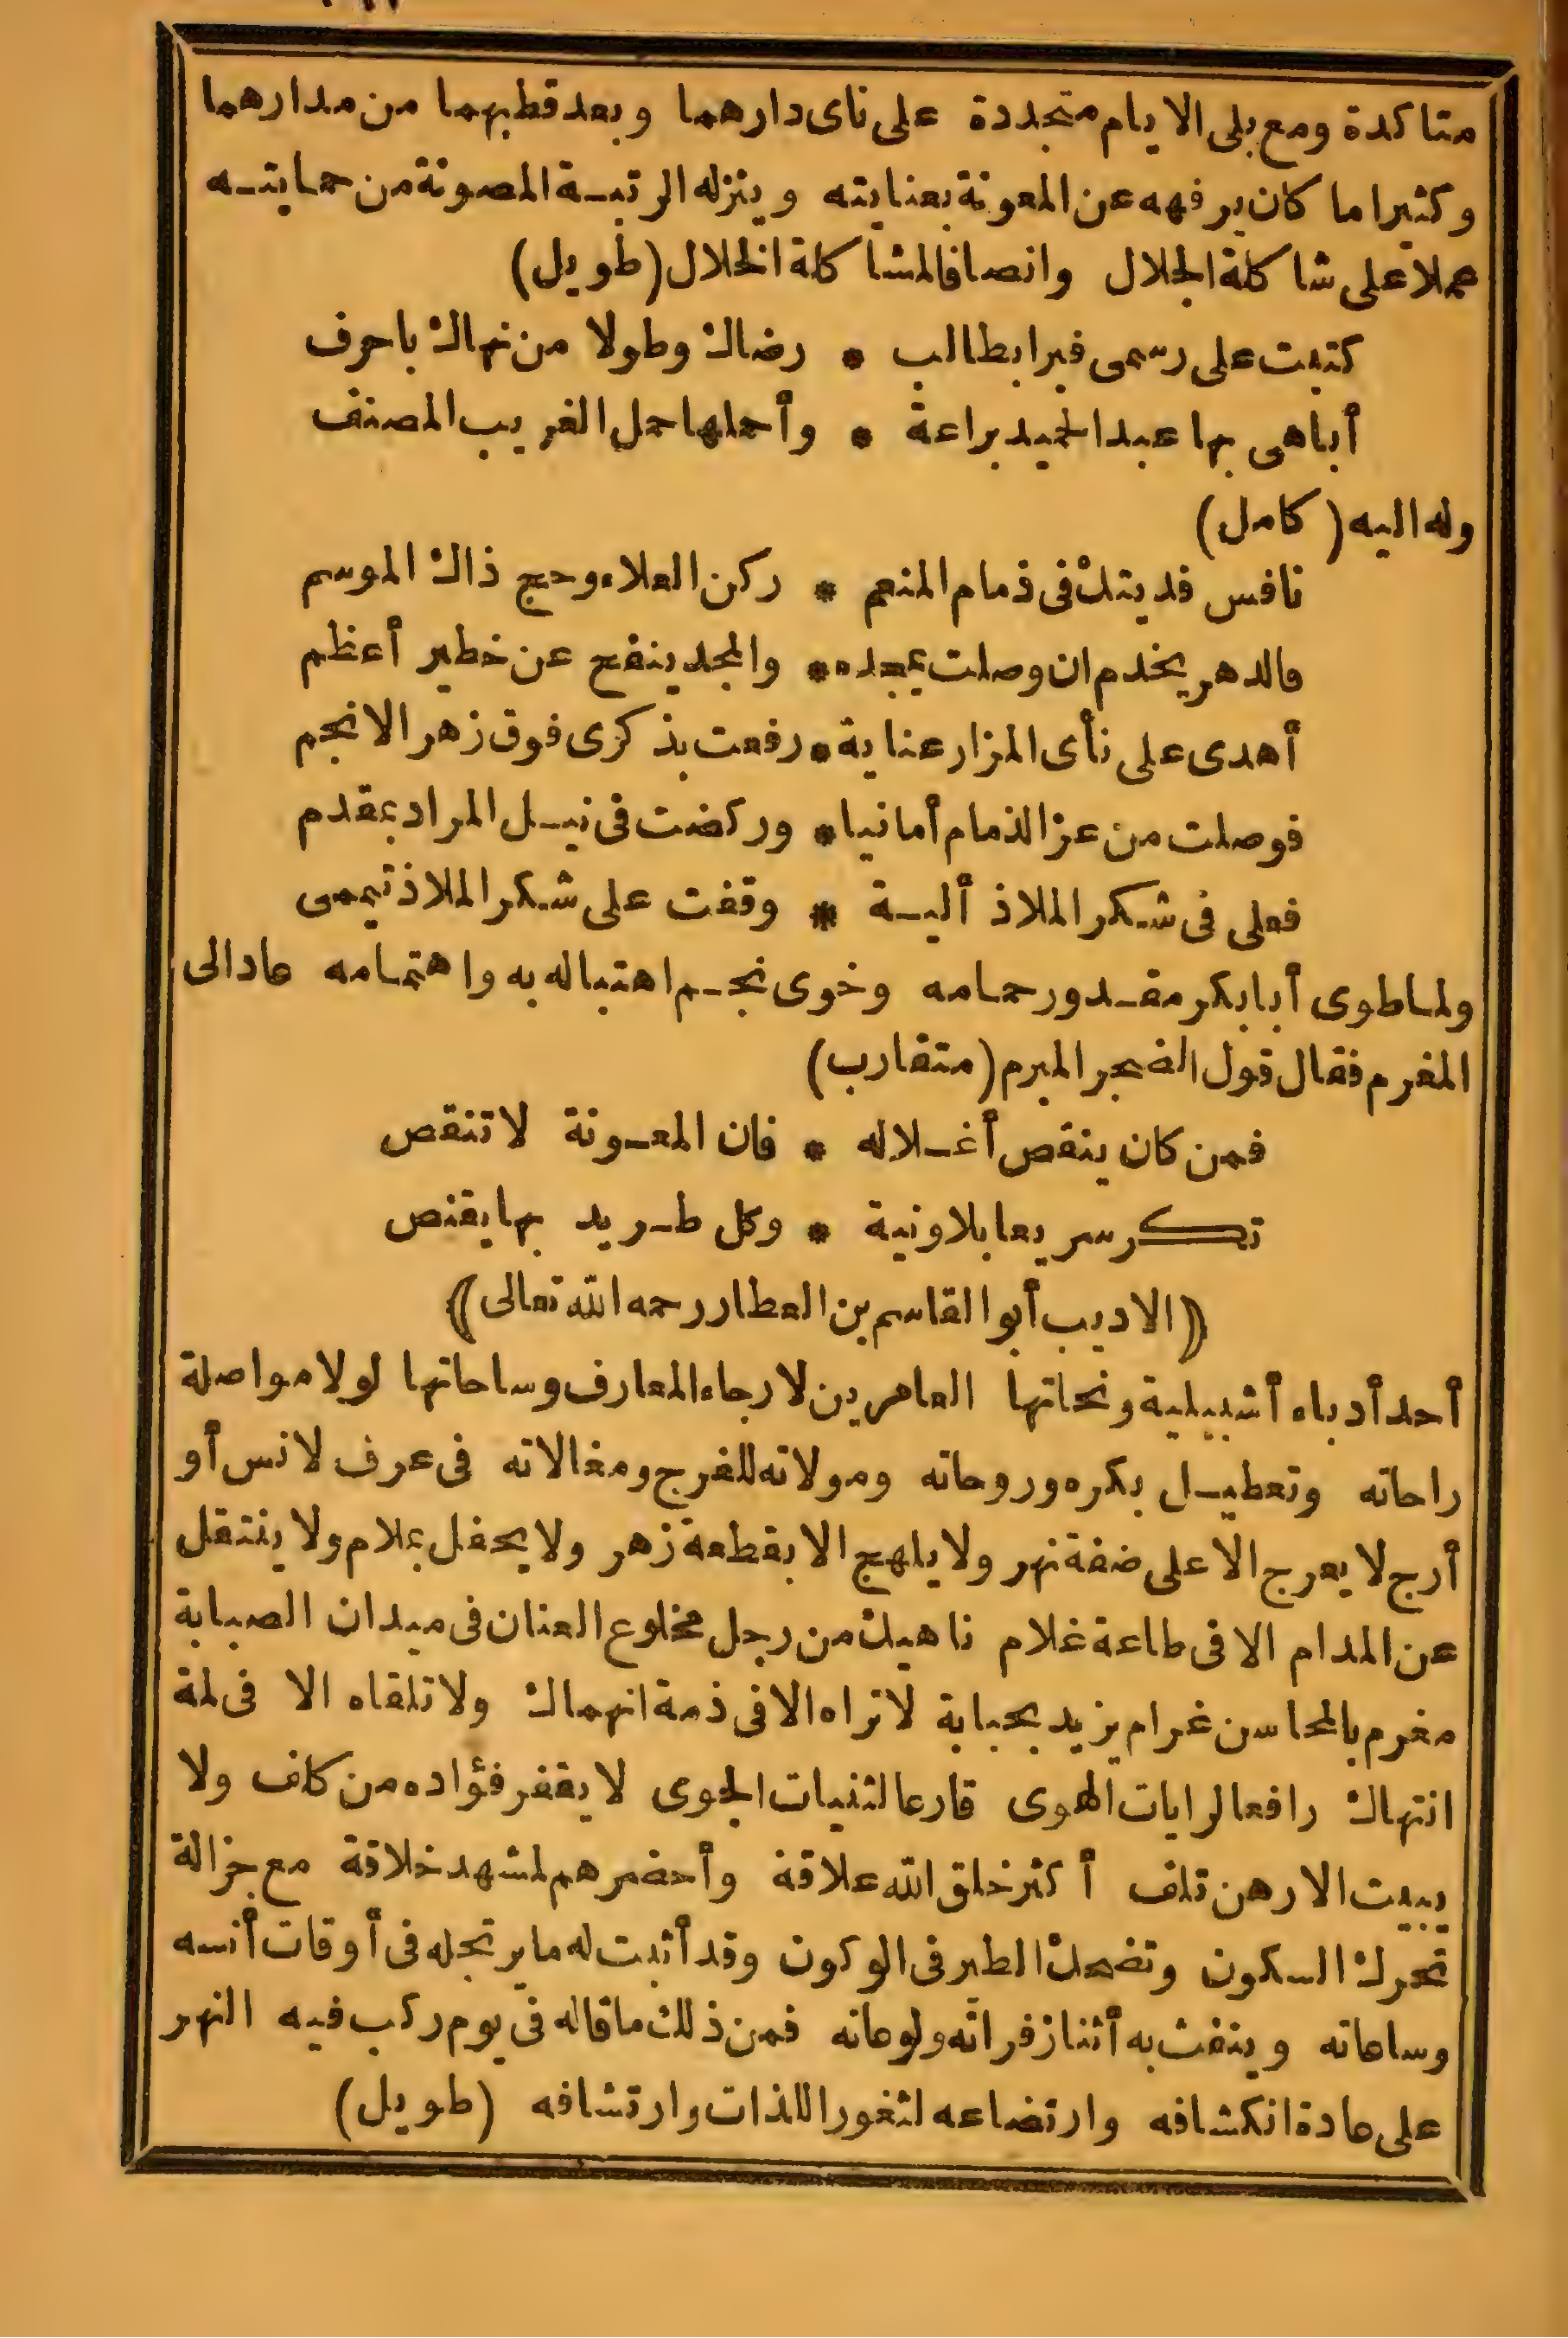 متاكدة ومع بلى الايام متجددة على ناى دارهما وبعد قطبهما من مدارهما
وكثيرا ما كان يرفهه عن المعونة بعنايته وينزله الرتبة المصونة من حمايته
عملا على شاكلة الجلال وانصافا لمشاكلة الخلال (طويل)
كتبت على رسمى فبرا بطالب * رضاك وطولا من نهاك باحرف
أباهى بها عبد الحميد براعة * وأحملها حمل الغريب المصنف
وله اليه (كامل)
نافس فديتك فى ذمام المنعم * ركن العلاء وحج ذاك الموسم
فالدهر يخدم ان وصلت بمجده * والمجد ينفح عن خطير أعظم
أهدى على نأى المزار عناية * رفعت بذكرى فوق زهر الانجم
فوصلت من عز الذمام أمانيا * وركضت فى نيل المراد بمقدم
فعلى فى شكر الملاذ ألية * وقفت على شكر الملاذ تيممى
ولما طوى أبا بكر مقدور حمامه وخوى نجم اهتباله به واهتمامه عاد الى
المغرم فقال قول الضجر المبرم (متقارب)
فمن كان ينقص أغلاله * فان المعونة لا تنقص
تكر سريعا بلا ونية * وكل طريد بها يقنص
(الاديب أبو القاسم بن العطار رحمه الله تعالى)
أحد أدباء أشبيلية ونحاتها العامرين لارجاء المعارف وساحاتها لولا مواصلة
راحاته وتعطيل بكره وروحاته ومولاته للفرج ومغالاته فى عرف لانس أو
أرج لا يعرج الا على ضفة نهر ولا يلهج الا بقطعة زهر ولا يحفل بملام ولا ينتقل
عن المدام الا فى طاعة غلام ناهيك من رجل مخلوع العنان فى ميدان الصبابة
مغرم بالمحاسن غرام يزيد بحبابة لا تراه الا فى ذمة انهماك ولا تلقاه الا فى لمة
انتهاك رافعا لرايات الهوى قارعا لثنيات الجوى لا يقفر فؤاده من كلف ولا
يبيت الا رهن تلف أكثر خلق الله علاقة وأحضرهم لمشهد خلاقة مع جزالة
تحرك السكون وتضحك الطير فى الوكون وقد أثبت له ما يرتجله فى أوقات أنسه
وساعاته وينفث به أثنا زفراته ولوعاته فمن ذلك ما قاله فى يوم ركب فيه النهر
على عادة انكشافه وارتضاعه لثغور اللذات وارتشافه (طويل)